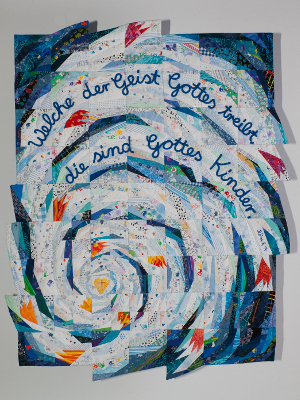 Welche der Geist Gottes treibt
die sind Gottes Kinder